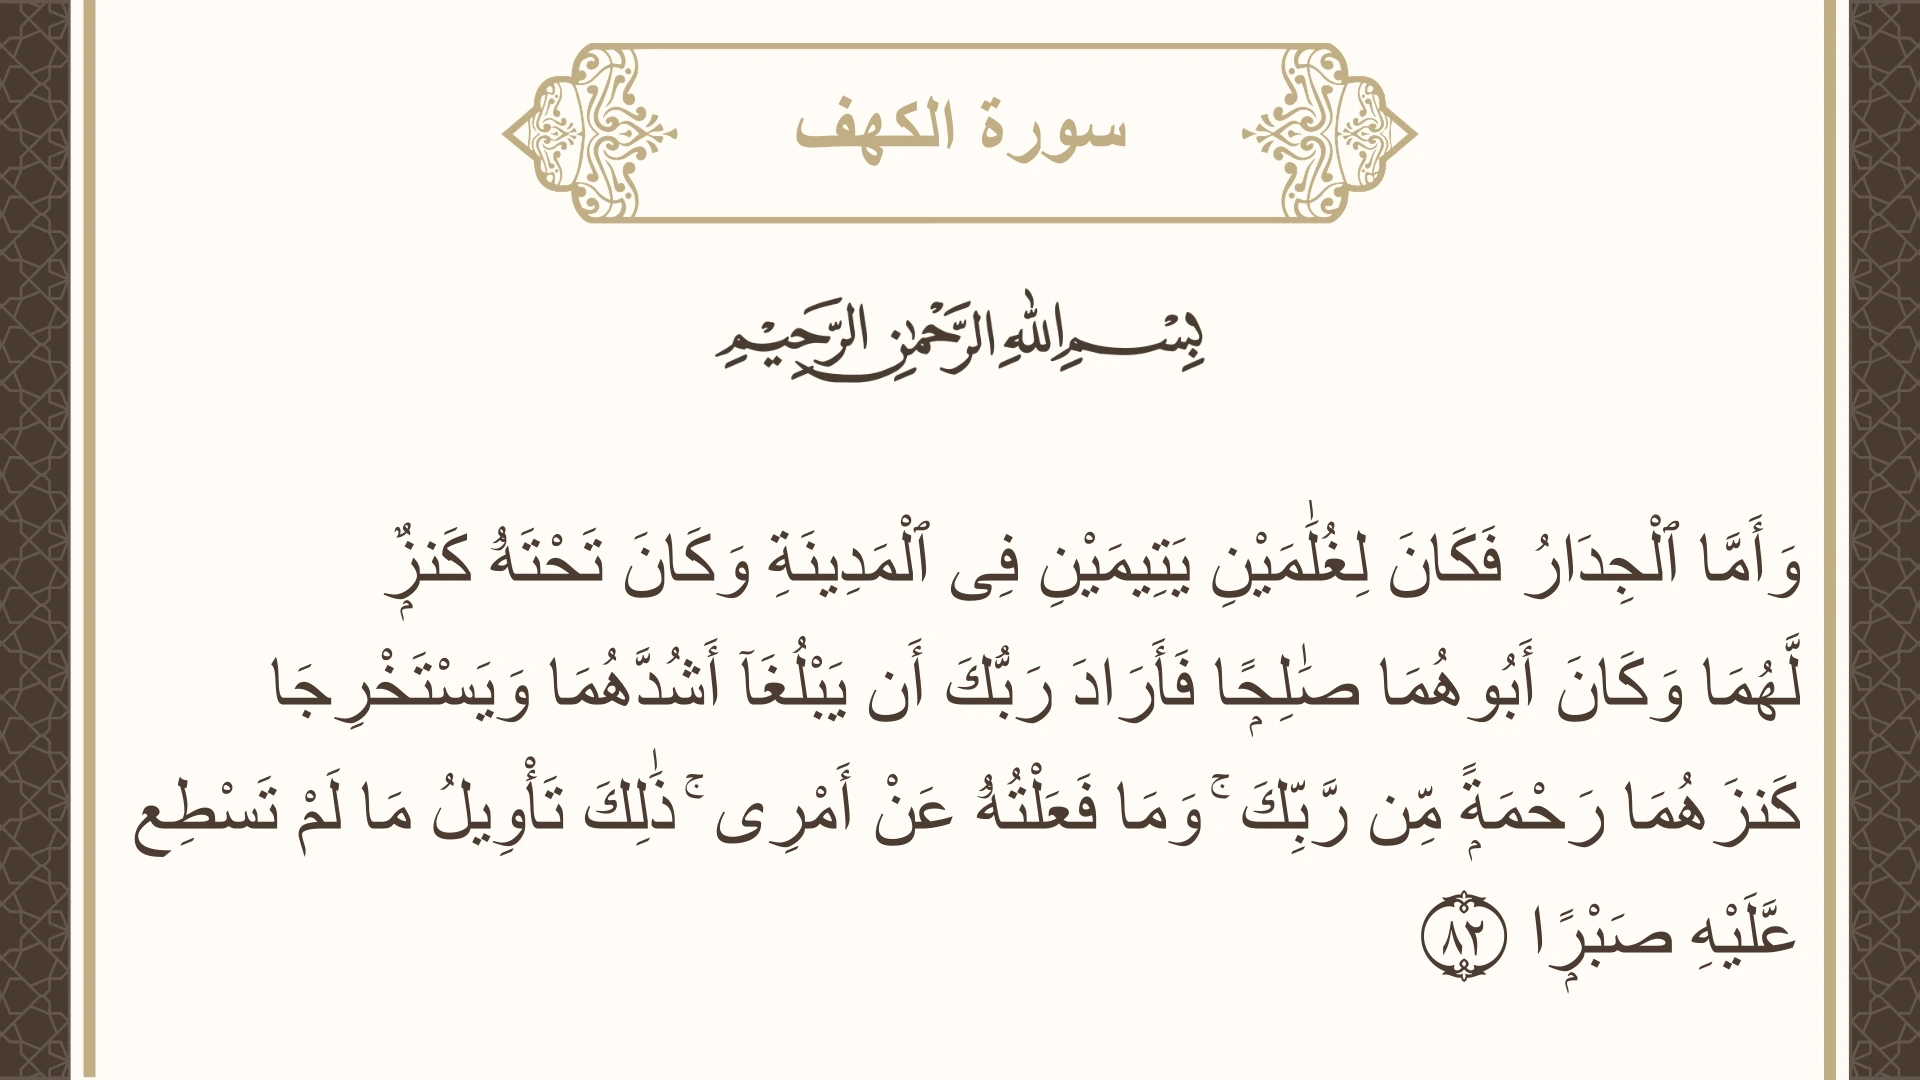 سورة الكهف
بِسْمِ اللهِ الرَّحْمٰنِ الرَّحِيْمِ
وَأَمَّا ٱلْجِدَارُ فَكَانَ لِغُلَٰمَيْنِ يَتِيمَيْنِ فِى ٱلْمَدِينَةِ وَكَانَ تَحْتَهُۥ كَنزٌۭ
لَّهُمَا وَكَانَ أَبُوهُمَا صَٰلِحًۭا فَأَرَادَ رَبُّكَ أَن يَبْلُغَآ أَشُدَّهُمَا وَيَسْتَخْرِجَا
كَنزَهُمَا رَحْمَةًۭ مِّن رَّبِّكَ ۚ وَمَا فَعَلْتُهُۥ عَنْ أَمْرِى ۚ ذَٰلِكَ تَأْوِيلُ مَا لَمْ تَسْطِع
عَّلَيْهِ صَبْرًۭا ٨٢